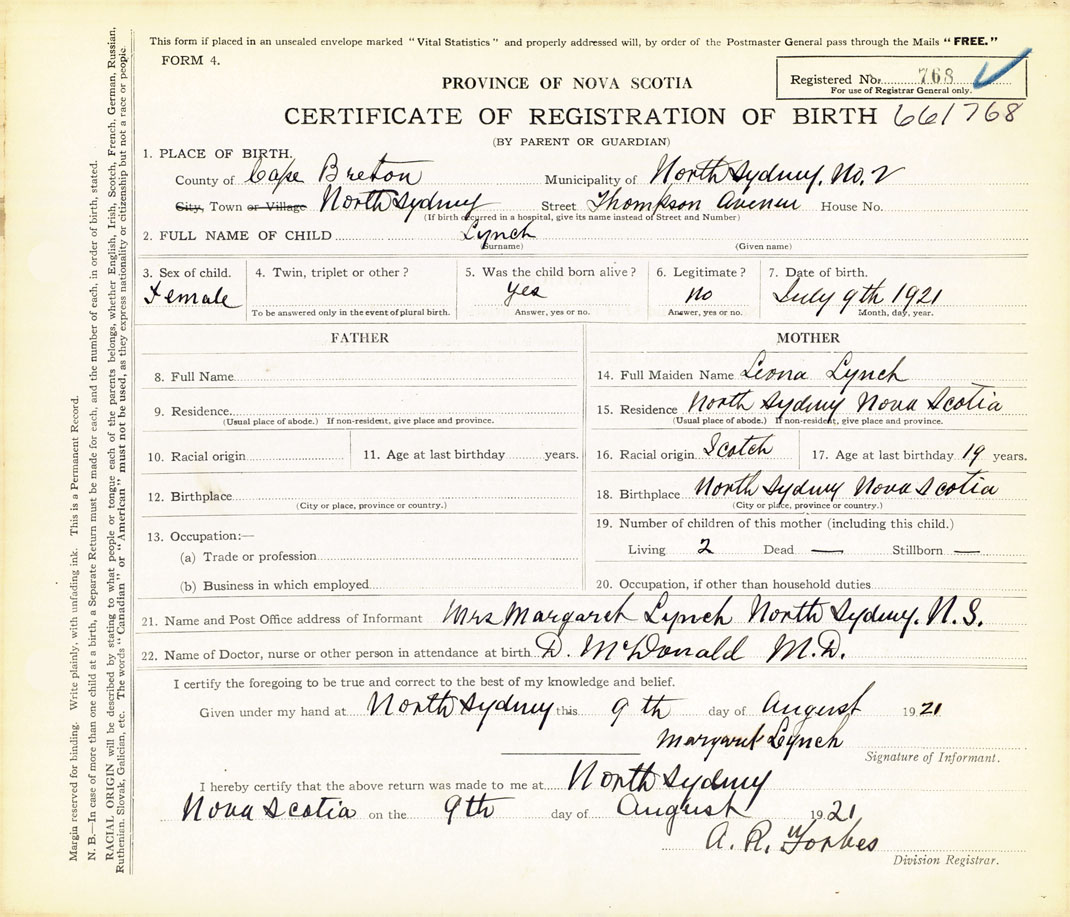 This form if placed in an unsealed envelope marked "Vital Statistics" and properly addressed will, by order of the Postmaster General pass through the Mails "FREE."
FORM 4.
Registered No. 768
For use of Registrar General only.
PROVINCE OF NOVA SCOTIA
CERTIFICATE OF REGISTRATION OF BIRTH 661768
(BY PARENT OR GUARDIAN)
1. PLACE OF BIRTH.
County of Cape Breton Municipality of North Sydney. No. 2
City, Town or Village North Sydney Street Thompson Avenue House No.
(If birth occurred in a hospital, give its name instead of Street and Number)
2. FULL NAME OF CHILD Lynch
(Surname) (Given name)
3. Sex of child. 4. Twin, triplet or other? 5. Was the child born alive? 6. Legitimate? 7. Date of birth.
Female yes no July 9th 1921
To be answered only in the event of plural birth. Answer, yes or no. Answer, yes or no. Month, day, year.
FATHER
8. Full Name
9. Residence
(Usual place of abode.) If non-resident, give place and province.
10. Racial origin 11. Age at last birthday years.
12. Birthplace
(City or place, province or country.)
13. Occupation:—
(a) Trade or profession
(b) Business in which employed
MOTHER
14. Full Maiden Name Leona Lynch
15. Residence North Sydney Nova Scotia
(Usual place of abode.) If non-resident, give place and province.
16. Racial origin Scotch 17. Age at last birthday 19 years.
18. Birthplace North Sydney Nova Scotia
(City or place, province or country.)
19. Number of children of this mother (including this child.)
Living 2 Dead — Stillborn —
20. Occupation, if other than household duties
21. Name and Post Office address of Informant Mrs Margaret Lynch North Sydney. N.S.
22. Name of Doctor, nurse or other person in attendance at birth D. McDonald M.D.
I certify the foregoing to be true and correct to the best of my knowledge and belief.
Given under my hand at North Sydney this 9th day of August 1921
Margaret Lynch
Signature of Informant.
I hereby certify that the above return was made to me at North Sydney
Nova Scotia on the 9th day of August 1921
A. R. Forbes
Division Registrar.
Margin reserved for binding. Write plainly, with unfading ink. This is a Permanent Record.
N. B.—In case of more than one child at a birth, a Separate Return must be made for each, and the number of each, in order of birth, stated.
RACIAL ORIGIN will be described by stating to what people or tongue each of the parents belongs, whether English, Irish, Scotch, French, German, Russian,
Ruthenian, Slovak, Galician, etc. The words "Canadian" or "American" must not be used, as they express nationality or citizenship but not a race or people.